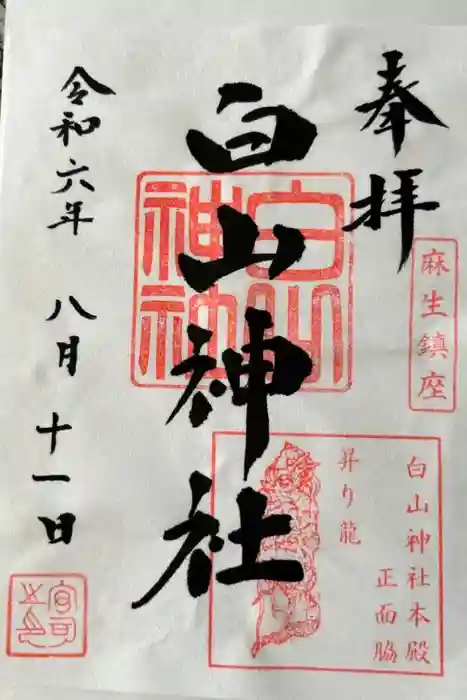 奉拝
麻生鎮座
白山神社
白山神社
白山神社本殿
正面脇
昇り龍
令和六年 八月 十一日
宮司之印